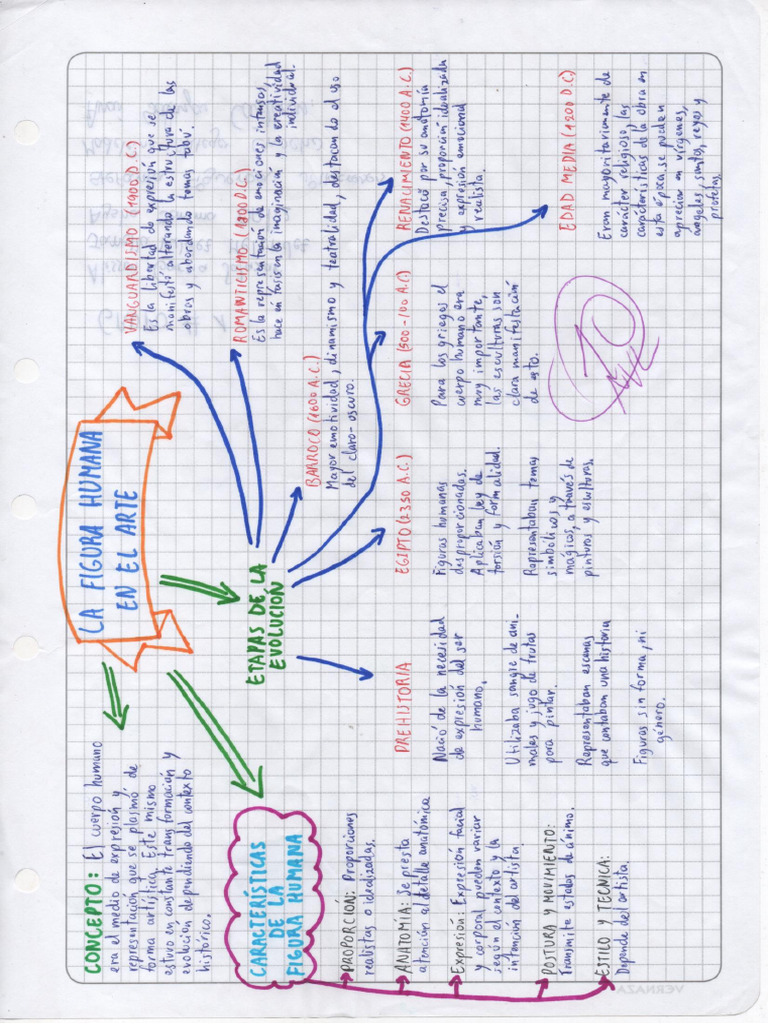 LA FIGURA HUMANA
EN EL ARTE
CONCEPTO: El cuerpo humano
era el medio de expresión y
representación que se plasmó de
forma artística. Este mismo
estuvo en constante transformación y
evolución dependiendo del contexto
histórico.
CARACTERÍSTICAS
DE LA
FIGURA HUMANA
PROPORCIÓN: Proporciones
realistas o idealizadas.
ANATOMÍA: Se presta
atención al detalle anatómico
Expresión: Expresión facial
y corporal pueden variar
según el contexto y la
intención del artista
POSTURA Y MOVIMIENTO:
Transmite estados de ánimo.
ESTILO Y TECNICA:
Depende del artista.
ETAPAS DE LA
EVOLUCIÓN
PREHISTORIA
Nació de la necesidad
de expresión del ser
humano.
Utilizaba sangre de ani-
males y jugo de frutas
para pintar.
Representaban escenas
que contaban una historia
Figuras sin forma, ni
género.
EGIPTO (2350 A.C.)
Figuras humanas
desproporcionadas.
Aplicaban ley de
torsión y formalidad.
Representaban temas
simbólicos y
mágicos, a través de
pinturas y esculturas.
GRECIA (500-100 A.C)
Para los griegos el
cuerpo humano era
muy importante,
las esculturas son
clara manifestación
de esto.
EDAD MEDIA (1200 D.C)
Eran mayoritariamente de
carácter religioso, las
características de la obra en
esta época se pueden
apreciar en vírgenes,
angeles, santos, reyes y
profetas.
RENACIMIENTO (1400 A.C.)
Destacó por su anatomía
precisa, proporción idealizada
y expresión emocional
realista.
BARROCO (1600 A.C)
Mayor emotividad, dinamismo y teatralidad, destacando el uso
del claro-oscuro.
ROMANTICISMO (1800 D.C.)
Es la representación de emociones intensas,
hace enfasis en la imaginación y la creatividad
individual.
VANGUARDISMO (1900 D.C.)
Es la libertad de expresión que se
manifestó alterando la estructura de las
obras y abordando temas tabú.
10
VERNAZA